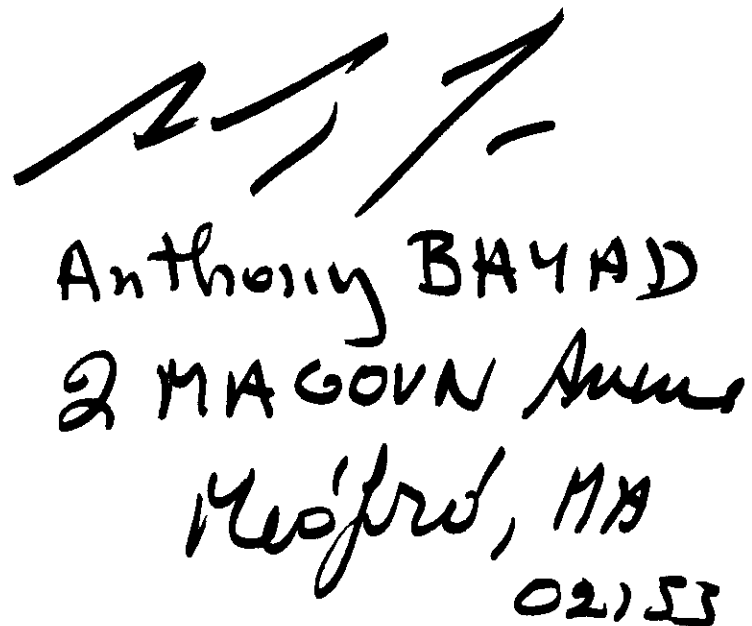 Anthony BAYAD
2 MAGOUN Avenue
Medford, MA
02153